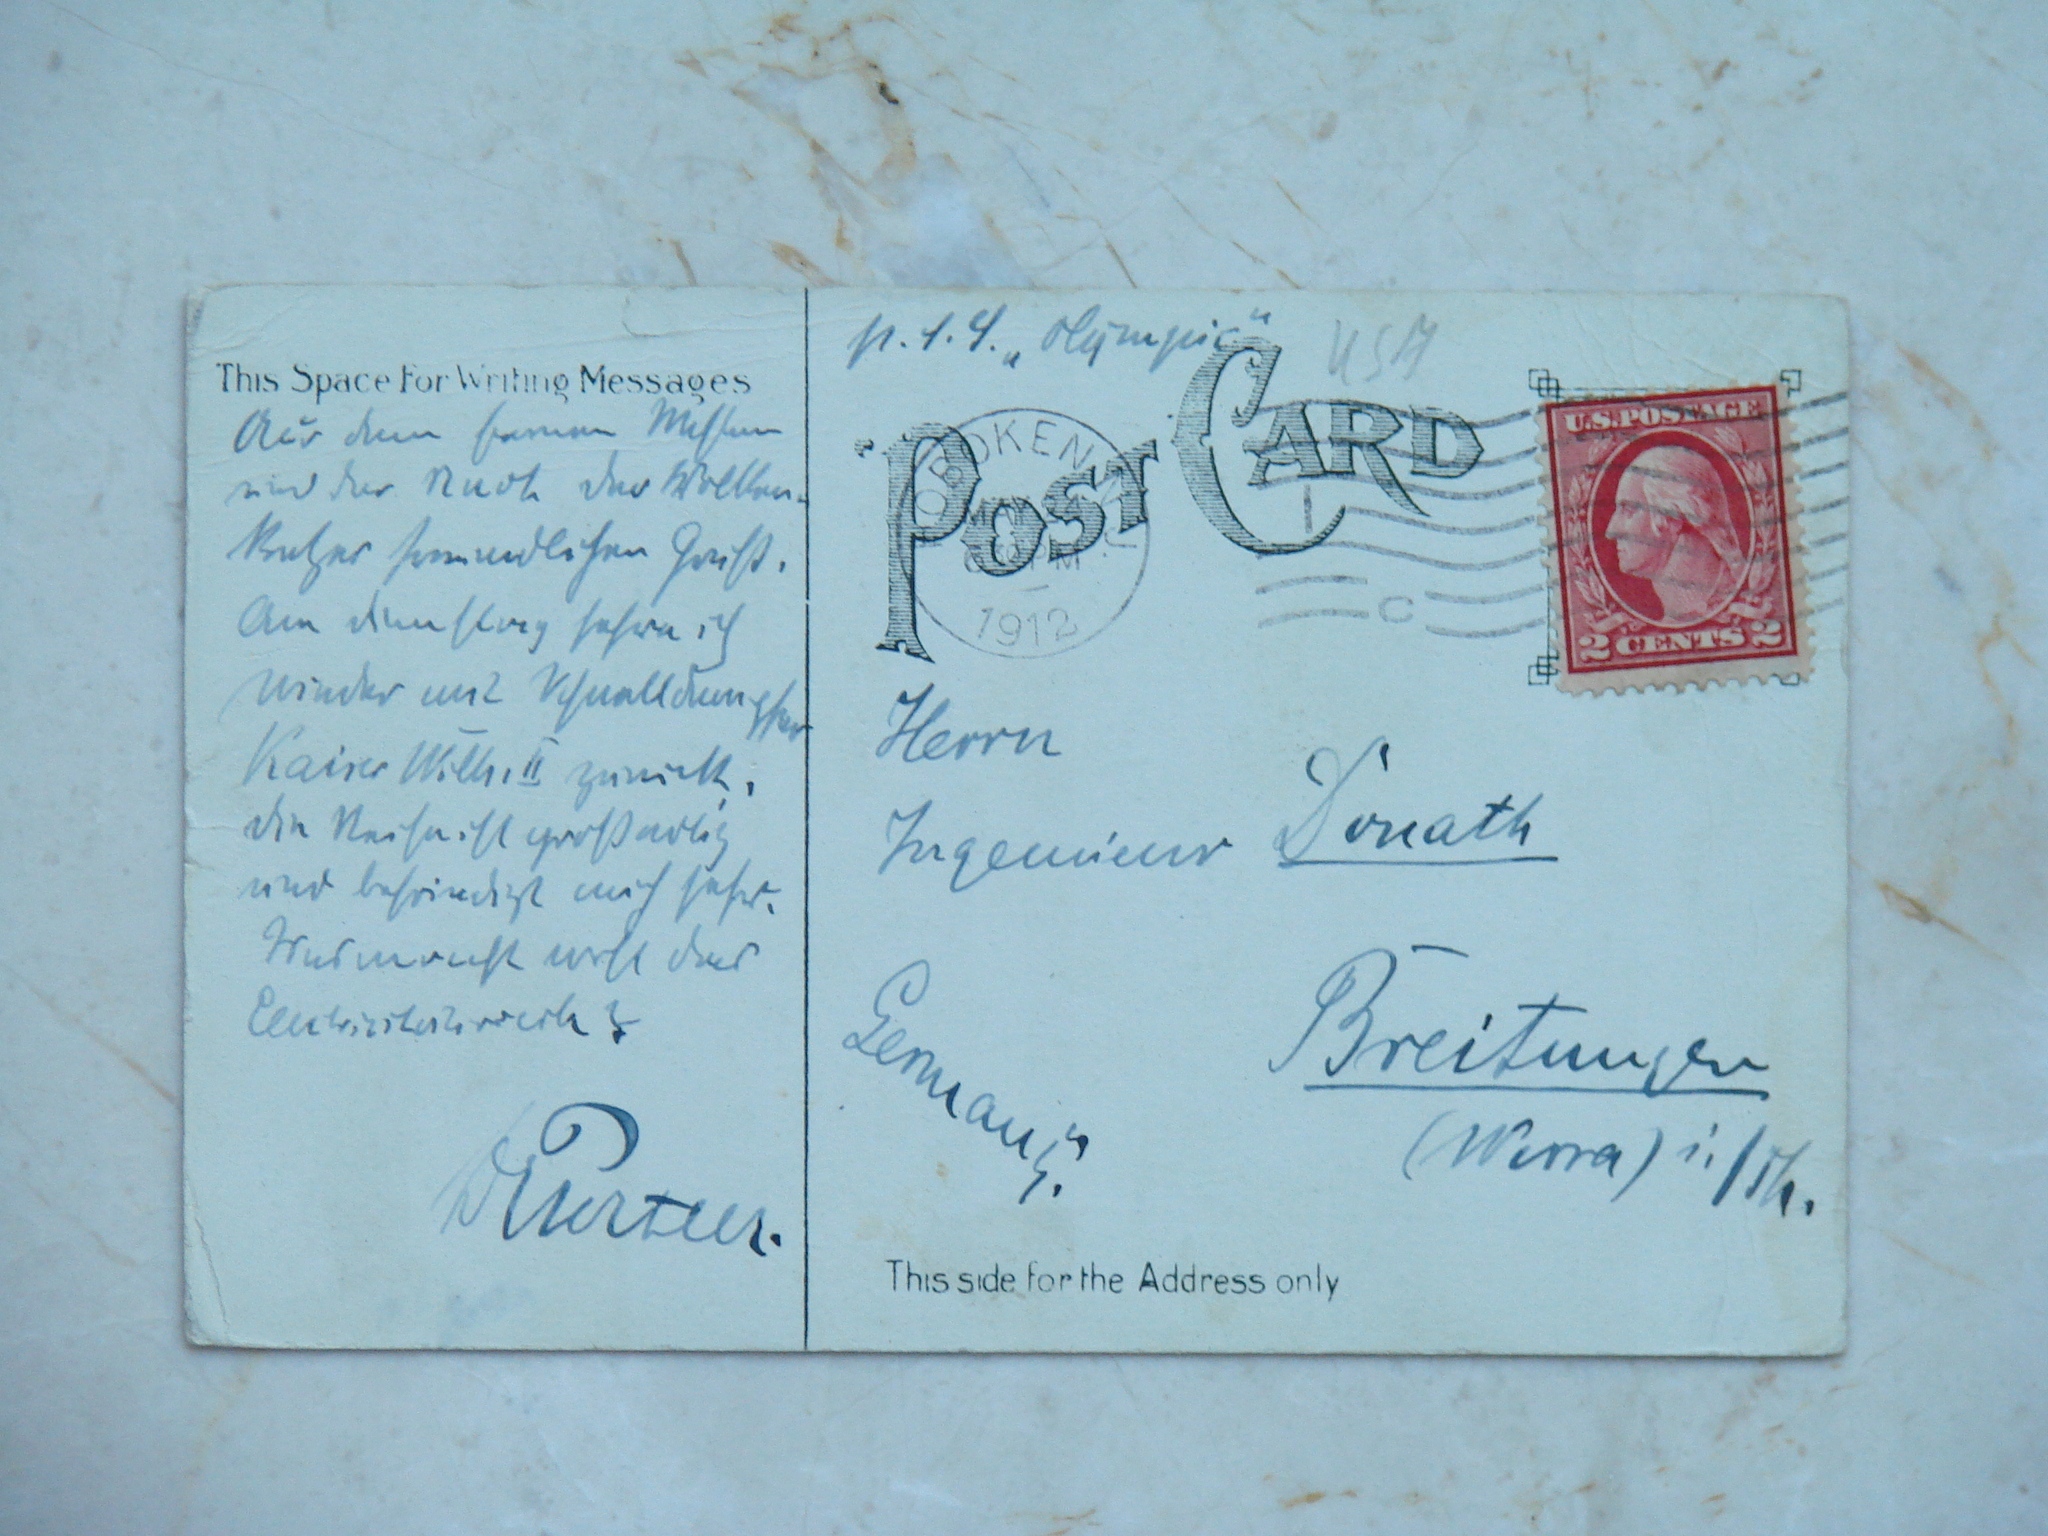 This Space For Writing Messages
Aus dem fernen Westen
und der Stadt der Wolken-
Kratzer freundlichen Gruß.
Am Dienstag fahre ich
wieder mit Schnelldampfer
Kaiser Wilh. II zurück.
Die Reise ist großartig
und befriedigt mich sehr.
Was macht wohl das
Elektrizitätswerk?
p. s. S. „Olympic"
USA
POST CARD
HOBOKEN N.J.
PM
1912
C
U.S. POSTAGE
2 CENTS 2
Herrn
Ingenieur Donath
Breitungen
(Werra) i./Th.
Germany.
This side for the Address only